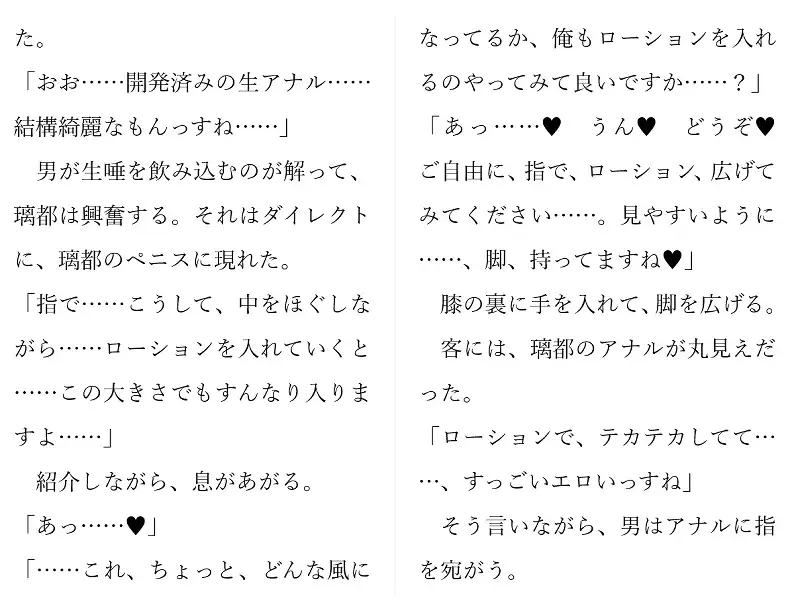 た。
「おお……開発済みの生アナル……
結構綺麗なもんっすね……」
　男が生唾を飲み込むのが解って、
璃都は興奮する。それはダイレクト
に、璃都のペニスに現れた。
「指で……こうして、中をほぐしな
がら……ローションを入れていくと
……この大きさでもすんなり入りま
すよ……」
　紹介しながら、息があがる。
「あっ……♥」
「……これ、ちょっと、どんな風に
なってるか、俺もローションを入れ
るのやってみて良いですか……？」
「あっ……♥　うん♥　どうぞ♥
ご自由に、指で、ローション、広げて
みてください……。見やすいように
……、脚、持ってますね♥」
　膝の裏に手を入れて、脚を広げる。
　客には、璃都のアナルが丸見えだ
った。
「ローションで、テカテカしてて…
…、すっごいエロいっすね」
　そう言いながら、男はアナルに指
を宛がう。